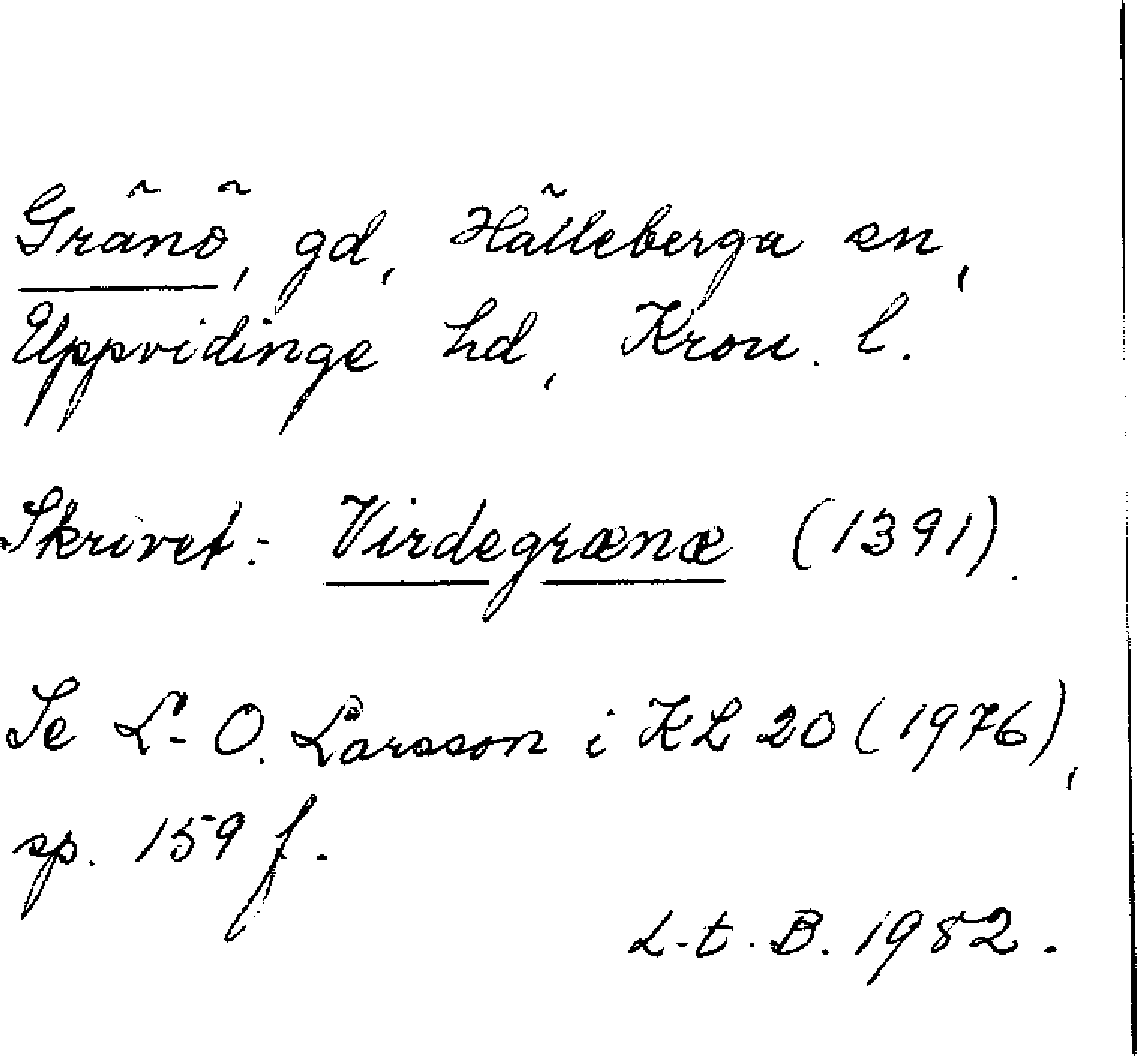 Gränö, gd, Hälleberga sn,
Uppvidinge hd, Kron. l.
Skrivet: Virdegrænæ (1391).
Se L-O. Larsson i KL 20 (1976),
sp. 159 f.
L-t. B. 1982.